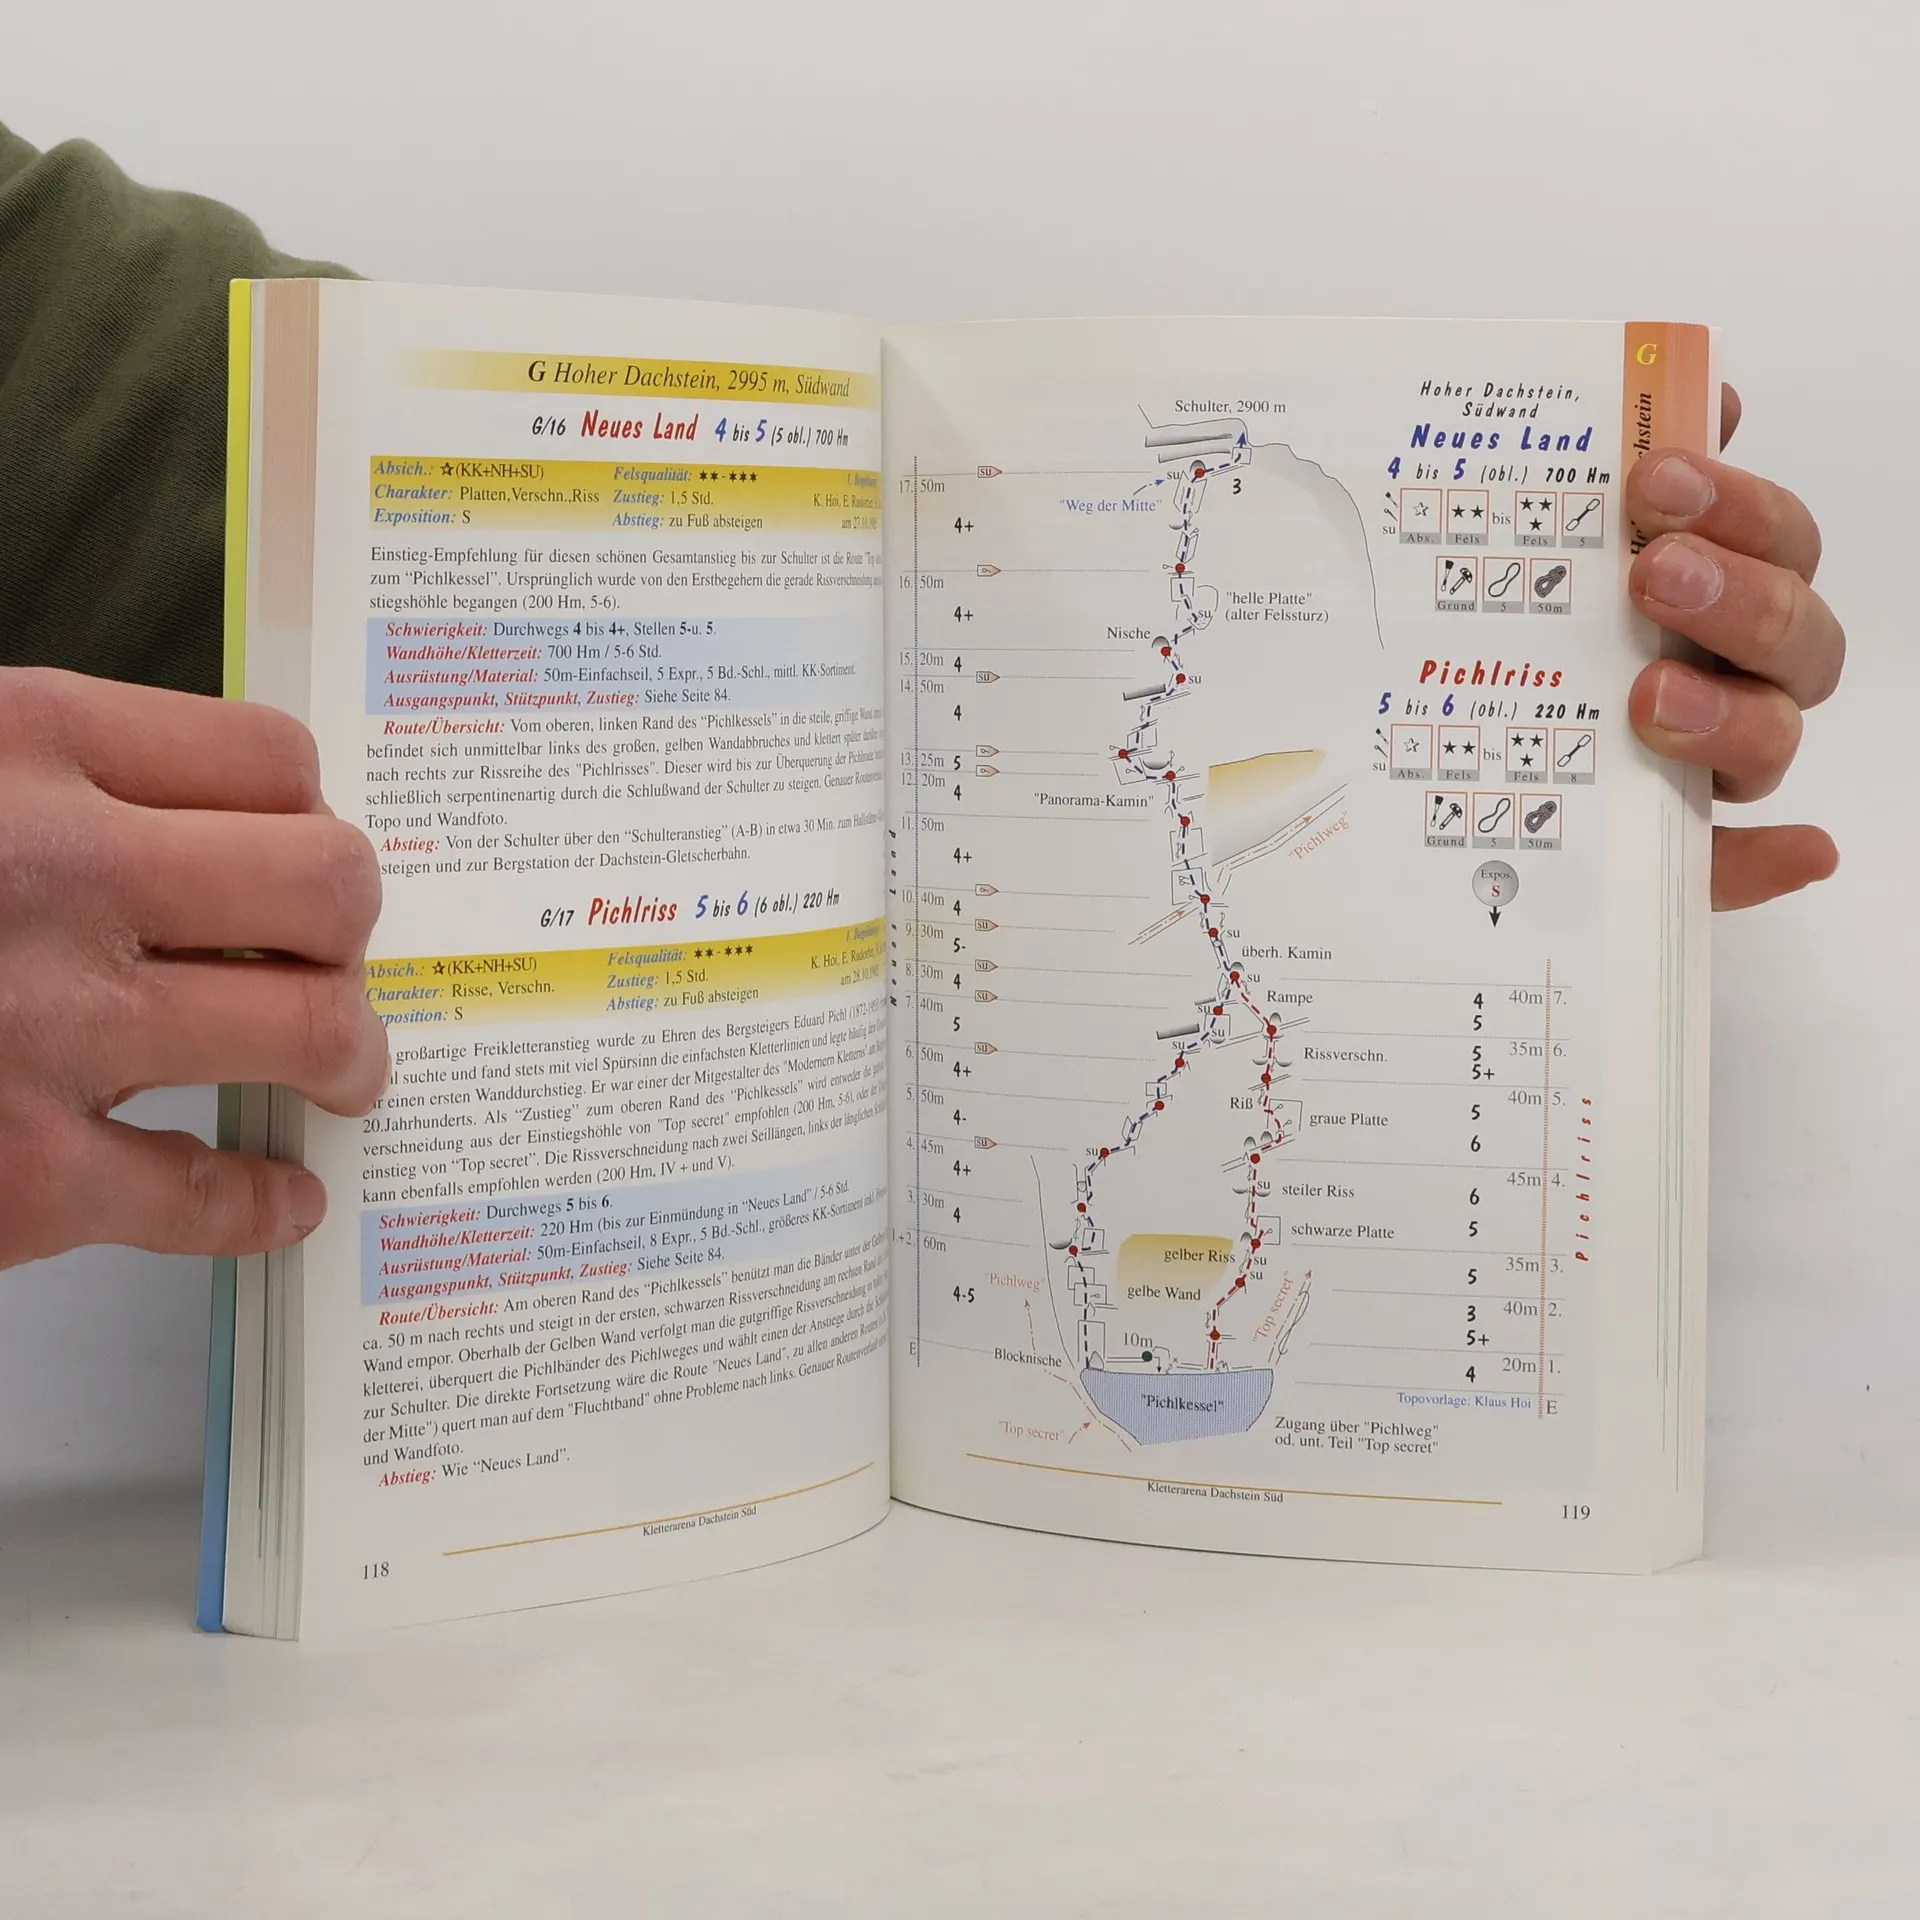 G Hoher Dachstein, 2995 m, Südwand
G/16 Neues Land 4 bis 5 (5 obl.) 700 Hm
Absich.: ☆(KK+NH+SU) Felsqualität: ★★-★★★
Charakter: Platten,Verschn.,Riss Zustieg: 1,5 Std. K. Hoi, E.
Exposition: S Abstieg: zu Fuß absteigen
Einstieg-Empfehlung für diesen schönen Gesamtanstieg bis zur Schulter ist die Route "Top
zum “Pichlkessel”. Ursprünglich wurde von den Erstbegehern die gerade Rissverschneidung
stiegshöhle begangen (200 Hm, 5-6).
Schwierigkeit: Durchwegs 4 bis 4+, Stellen 5-u. 5.
Wandhöhe/Kletterzeit: 700 Hm / 5-6 Std.
Ausrüstung/Material: 50m-Einfachseil, 5 Expr., 5 Bd.-Schl., mittl. KK-Sortiment.
Ausgangspunkt, Stützpunkt, Zustieg: Siehe Seite 84.
Route/Übersicht: Vom oberen, linken Rand des “Pichlkessels” in die steile, griffige Wand
befindet sich unmittelbar links des großen, gelben Wandabbruches und klettert später
nach rechts zur Rissreihe des "Pichlrisses". Dieser wird bis zur Überquerung der
schließlich serpentinenartig durch die Schlußwand der Schulter zu steigen. Genauer
Topo und Wandfoto.
Abstieg: Von der Schulter über den “Schulteranstieg” (A-B) in etwa 30 Min. zum
steigen und zur Bergstation der Dachstein-Gletscherbahn.
G/17 Pichlriss 5 bis 6 (6 obl.) 220 Hm
Absich.: ☆(KK+NH+SU) Felsqualität: ★★-★★★
Charakter: Risse, Verschn. Zustieg: 1,5 Std. K. Hoi, E.
xposition: S Abstieg: zu Fuß absteigen
großartige Freikletteranstieg wurde zu Ehren des Bergsteigers Eduard Pichl
suchte und fand stets mit viel Spürsinn die einfachsten Kletterlinien und legte häufig den
einen ersten Wanddurchstieg. Er war einer der Mitgestalter des "Modernern Kletterns"
20.Jahrhunderts. Als “Zustieg” zum oberen Rand des “Pichlkessels” wird entweder die
verschneidung aus der Einstiegshöhle von "Top secret" empfohlen (200 Hm, 5-6), oder der
einstieg von “Top secret”. Die Rissverschneidung nach zwei Seillängen, links der länglichen
kann ebenfalls empfohlen werden (200 Hm, IV + und V).
Schwierigkeit: Durchwegs 5 bis 6.
Wandhöhe/Kletterzeit: 220 Hm (bis zur Einmündung in “Neues Land” / 5-6 Std.
Ausrüstung/Material: 50m-Einfachseil, 8 Expr., 5 Bd.-Schl., größeres KK-Sortiment inkl.
Ausgangspunkt, Stützpunkt, Zustieg: Siehe Seite 84.
Route/Übersicht: Am oberen Rand des “Pichlkessels” benützt man die Bänder unter der
ca. 50 m nach rechts und steigt in der ersten, schwarzen Rissverschneidung am rechten Rand
Wand empor. Oberhalb der Gelben Wand verfolgt man die gutgriffige Rissverschneidung
kletterei, überquert die Pichlbänder des Pichlweges und wählt einen der Anstiege durch die
zur Schulter. Die direkte Fortsetzung wäre die Route "Neues Land", zu allen anderen Routen
der Mitte") quert man auf dem "Fluchtband" ohne Probleme nach links. Genauer Routenverlauf
und Wandfoto.
Abstieg: Wie “Neues Land”.
Kletterarena Dachstein Süd
118
G
Hoher Dachstein,
Südwand
Neues Land
4 bis 5 (obl.) 700 Hm
su Abs. Fels bis Fels 5
Grund 5 50m
Pichlriss
5 bis 6 (obl.) 220 Hm
su Abs. Fels bis Fels 8
Grund 5 50m
Expos.
S
Schulter, 2900 m
su
"Weg der Mitte"
3
17. 50m
su
4+
16. 50m
4+
"helle Platte"
(alter Felssturz)
su
Nische
15. 20m 4
14. 50m
su
su
4
13. 25m 5
12. 20m
4
"Panorama-Kamin"
"Pichlweg"
11. 50m
4+
10. 40m
4
9. 30m
su
su
5-
überh. Kamin
8. 30m
su
4
su
Rampe
7. 40m
su
5
su
su
su
6. 50m
su
4+
5. 50m
4-
4. 45m
su
su
4+
3. 30m
4
1.+2. 60m
4-5
E
Neues Land
4 40m 7.
5
Rissverschn.
5 35m 6.
5+
Riß
graue Platte
40m 5.
5
6
45m 4.
su
steiler Riss
6
schwarze Platte
5
gelber Riss
su
su
35m 3.
5
gelbe Wand
40m 2.
3
5+
20m 1.
4
E
Pichlriss
"Pichlweg"
"Top secret"
10m
Blocknische
"Pichlkessel"
"Top secret"
Topovorlage: Klaus Hoi
Zugang über "Pichlweg"
od. unt. Teil "Top secret"
Kletterarena Dachstein Süd
119